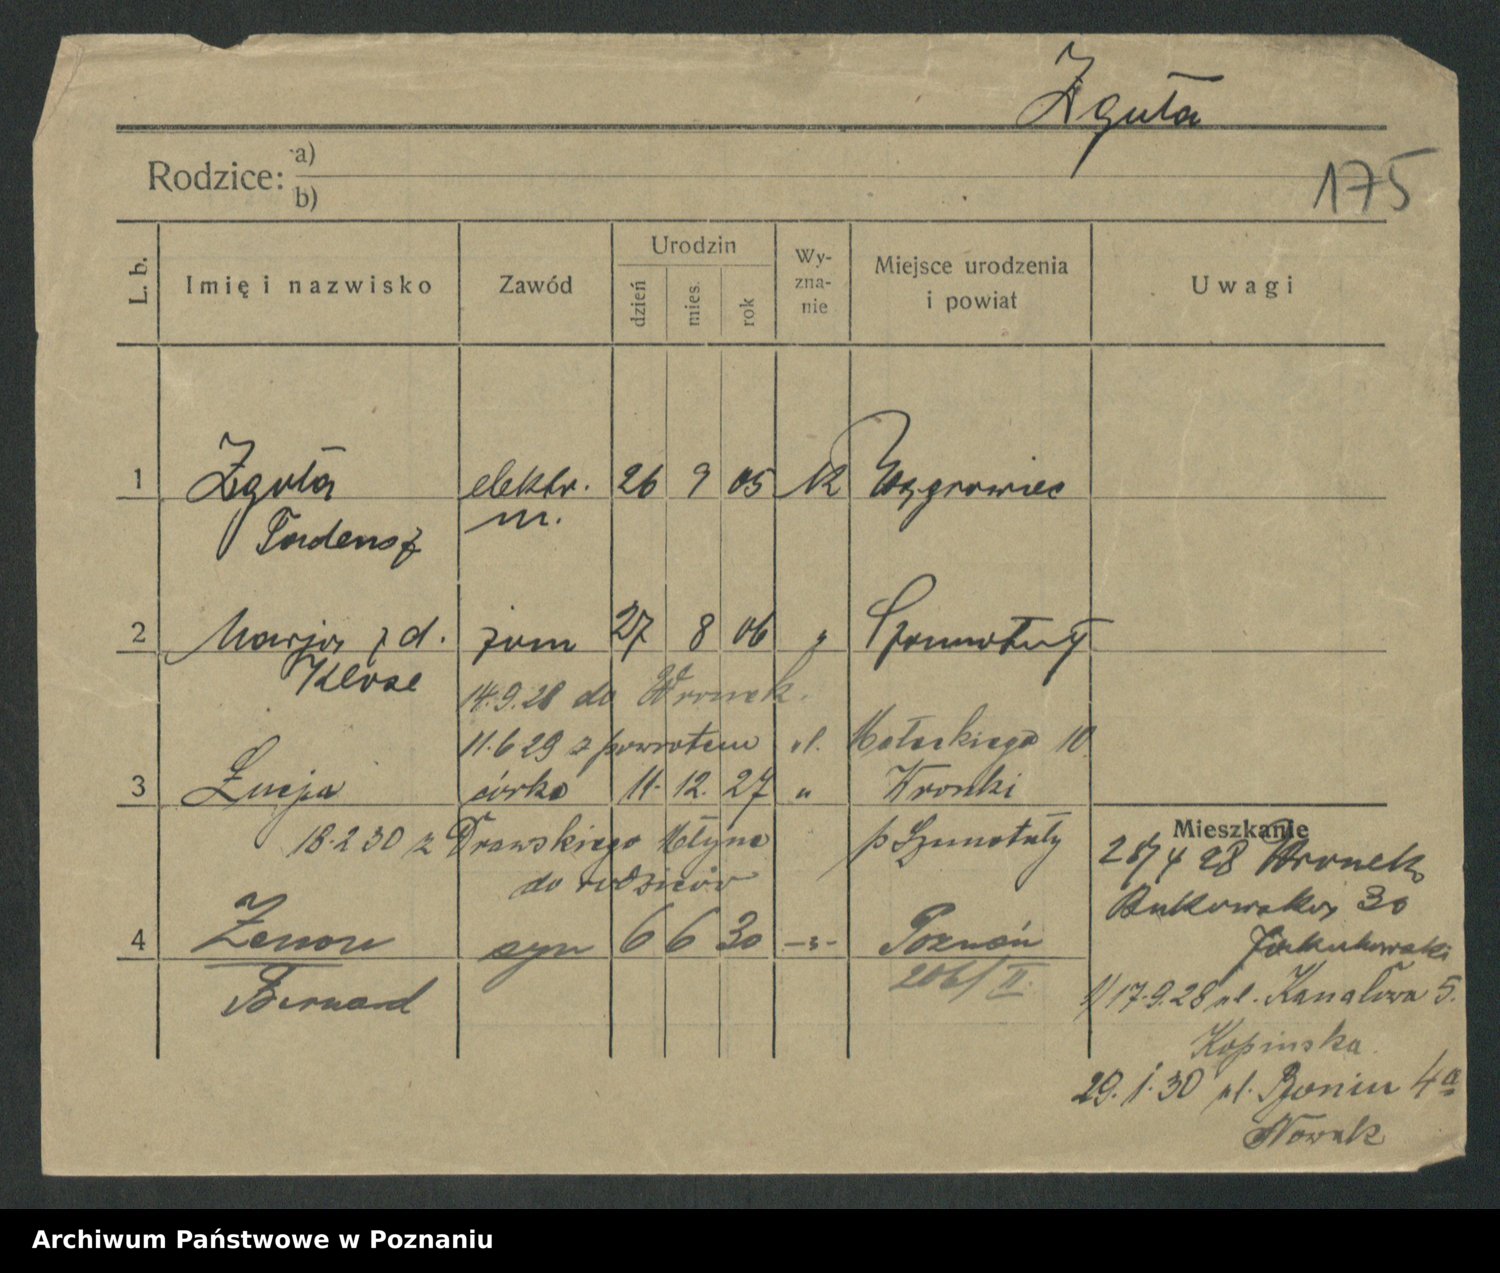 Zguła
Rodzice: a)
b)
175
L. b.
Imię i nazwisko
Zawód
Urodzin
dzień
mies.
rok
Wy-
zna-
nie
Miejsce urodzenia
i powiat
Uwagi
1 Zguła elektr. 26 9 05 rk Wągrowiec
Tadeusz m.
2 Marja z d. żona 27 8 06 " Szamotuły
Klose
14.9.28 do Wronek.
11.6 29 z powrotem ul. Małeckiego 10.
3 Łucja córka 11. 12. 27 " Wronki
18.2 30 z Drawskiego Młyna p Szamotuły
do rodziców
4 Zenon syn 6 6 30 -"- Poznań
Bernard 206/II.
Mieszkanie
28/4 28 Wronek
Bukowska 30
1/17.9.28 ul. Kanałowa 5.
Kopinska
29.1.30 ul. Bonin 4a
Nowak
Archiwum Państwowe w Poznaniu